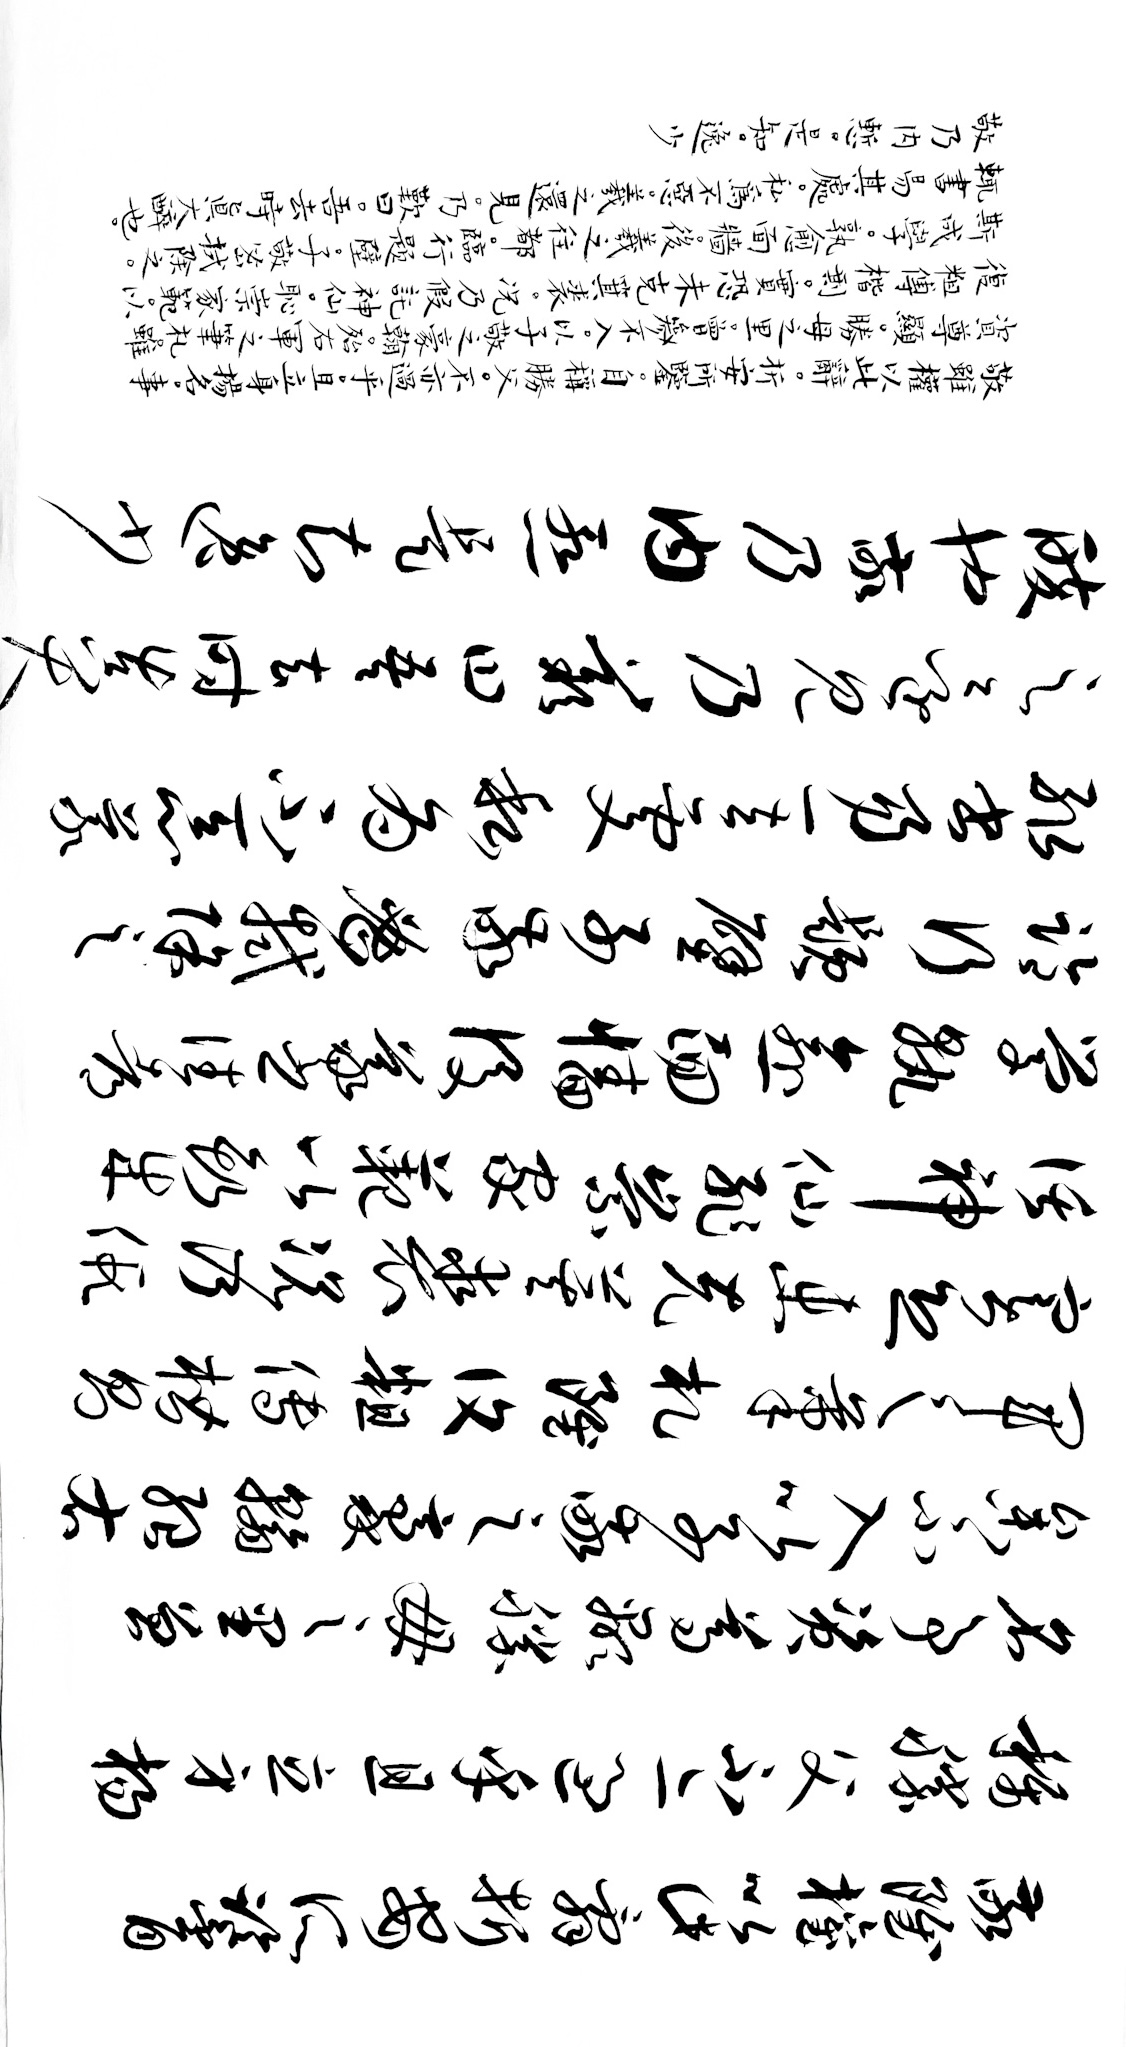 敬雖權以此辭折安所鑒自
稱勝父不亦過乎且立身揚
名事資尊顯勝母之里曾
參不入以子敬之豪翰紹右
軍之筆札雖復粗傳楷則
實恐未克箕裘況乃假
託神仙恥崇家範以斯成
學孰愈面牆後羲之往都
臨行題壁子敬密拭除之
輒書易其處私為不惡羲
之還見乃歎曰吾去時真大
醉也敬乃內慙是知逸少
敬雖權以此辭。折安所鑒。自稱勝父。不亦過乎。且立身揚名。事
資尊顯。勝母之里。曾參不入。以子敬之豪翰。紹右軍之筆札。雖
復粗傳楷則。實恐未克箕裘。況乃假託神仙。恥崇家範。以
斯成學。孰愈面牆。後羲之往都。臨行題壁。子敬密拭除之。
輒書易其處。私為不惡。羲之還見。乃歎曰。吾去時真大醉也。
敬乃內慙。是知逸少